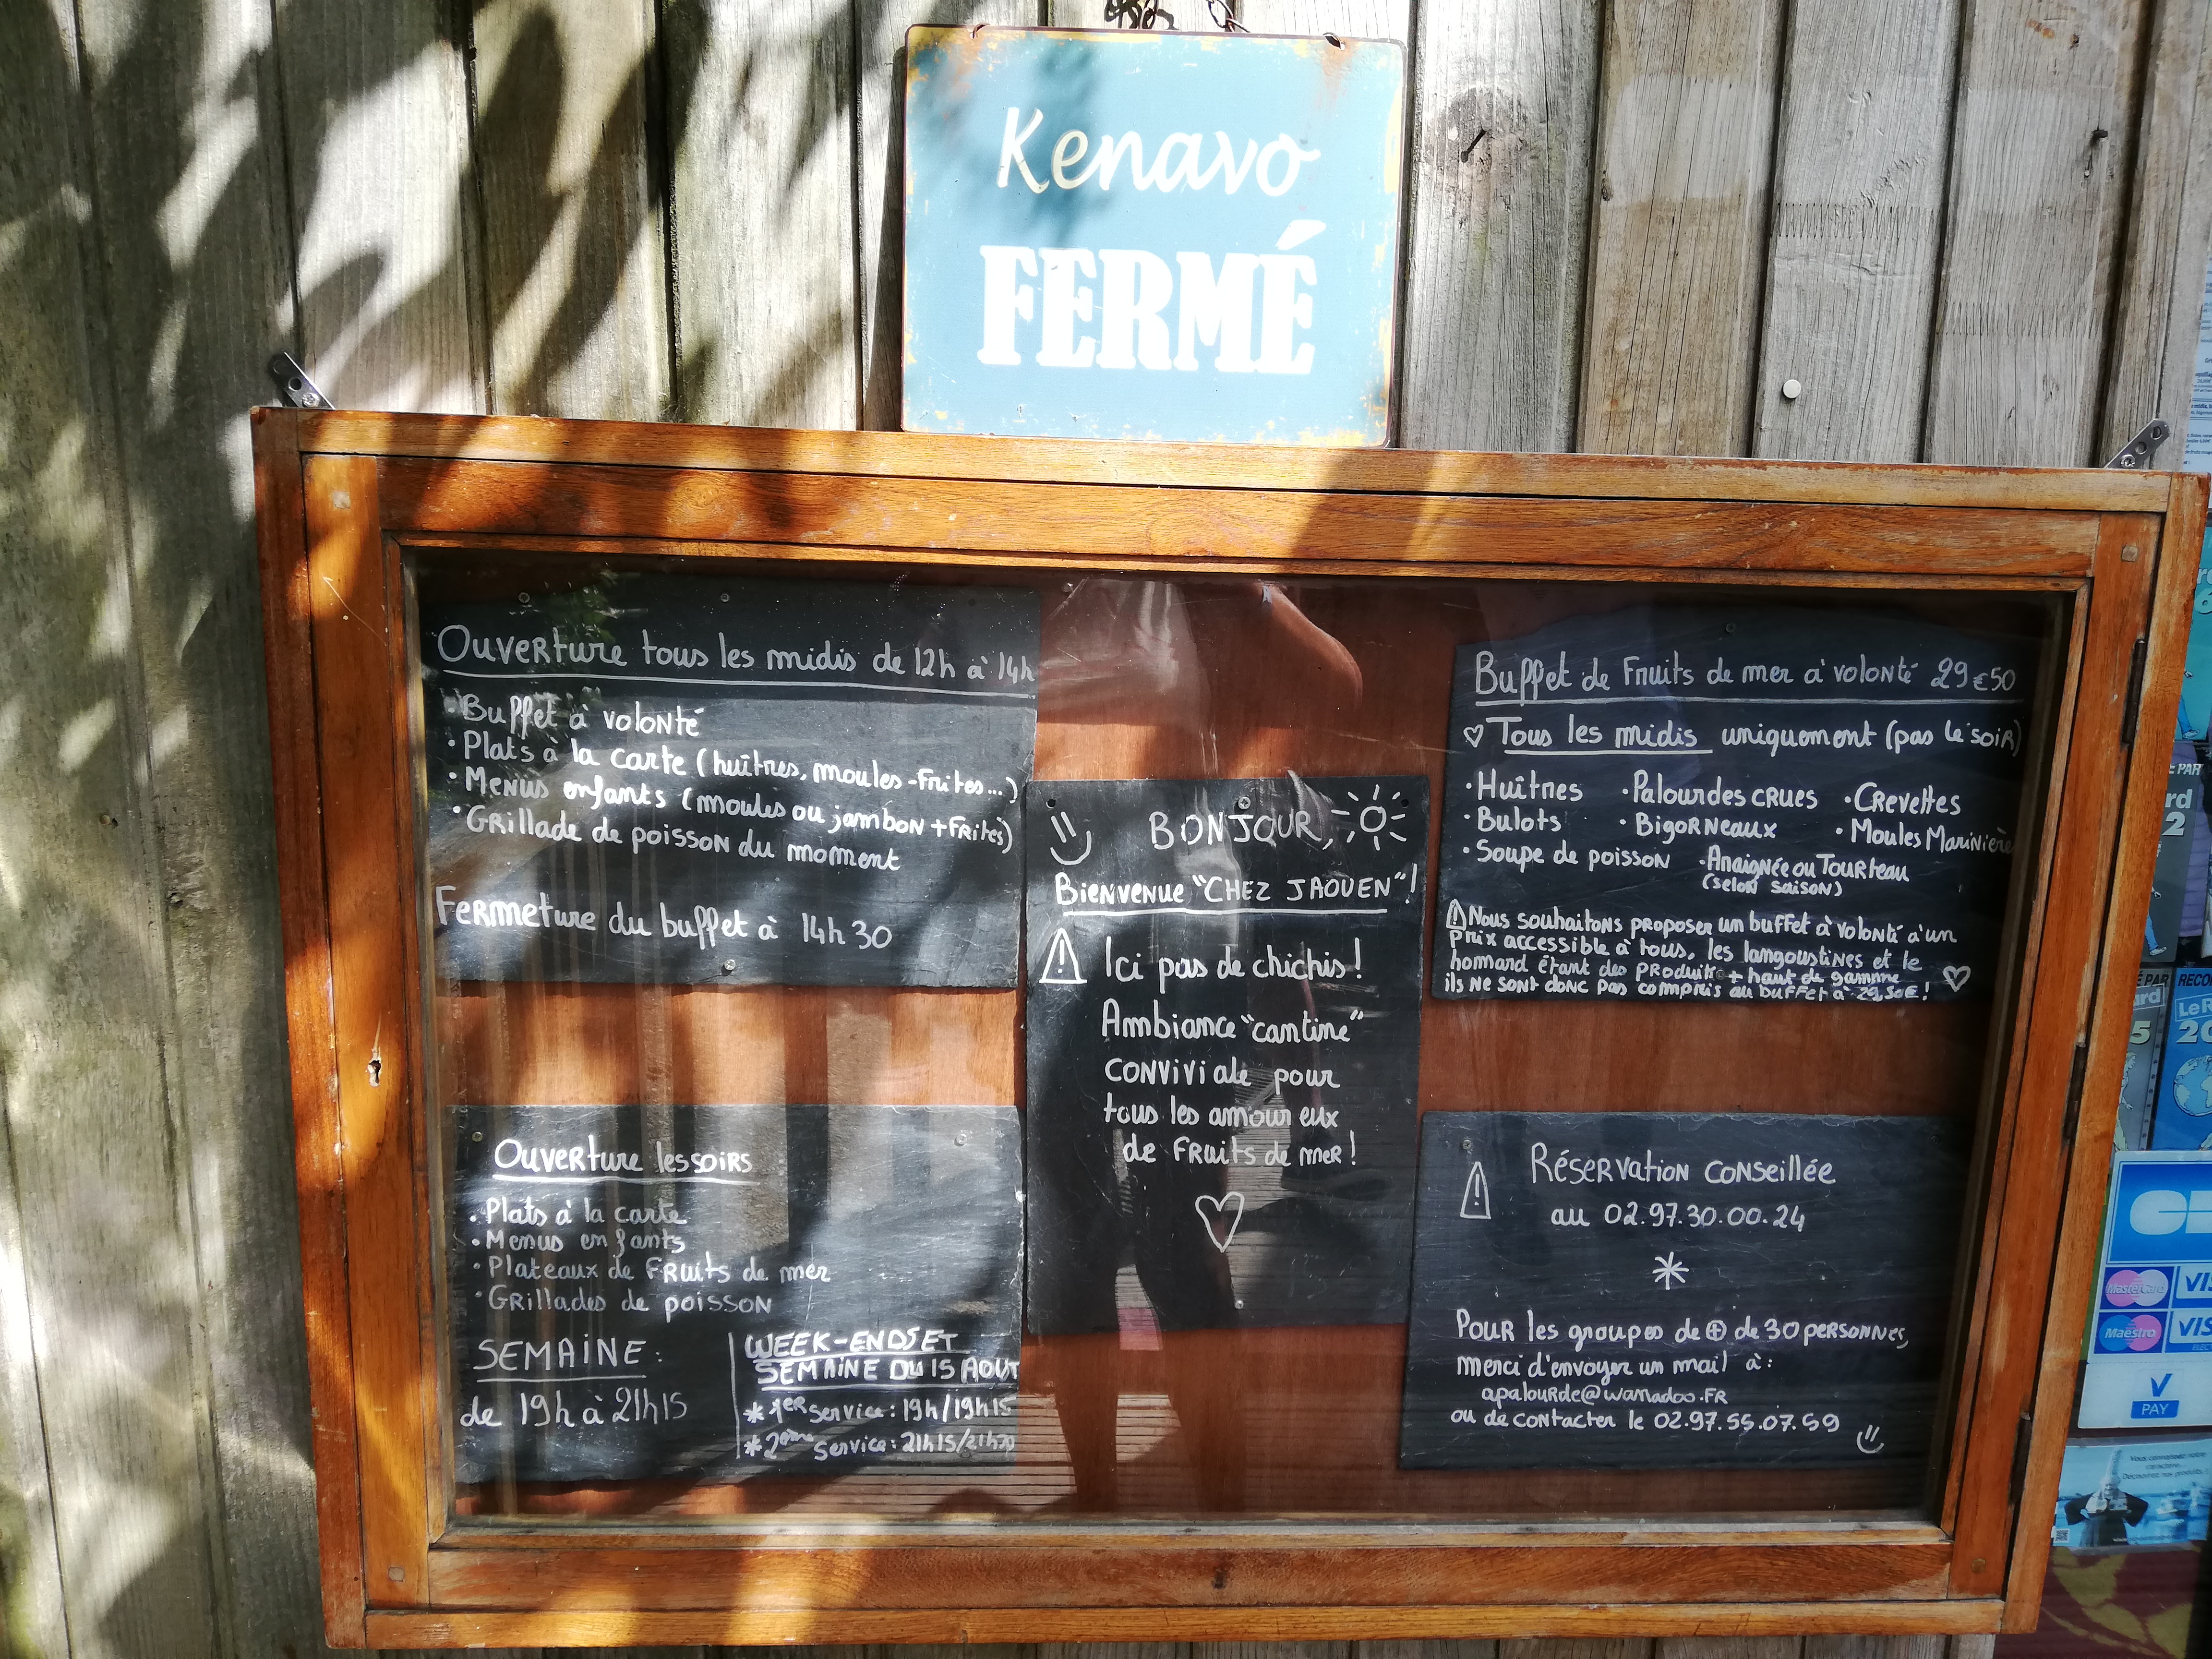 Kenavo
FERMÉ
Ouverture tous les midis de 12h à 14h
• Buffet à volonté
• Plats à la carte (huîtres, moules-frites...)
• Menus enfants (moules ou jambon + frites)
• Grillade de poisson du moment
Fermeture du buffet à 14h30
Ouverture les soirs
• Plats à la carte
• Menus enfants
• Plateaux de fruits de mer
• Grillades de poisson
SEMAINE :
de 19h à 21h15
WEEK-ENDS ET
SEMAINE DU 15 AOUT
* 1er service : 19h/19h15
* 2ème service : 21h15/21h30
BONJOUR,
Bienvenue "CHEZ JAOUEN" !
Ici pas de chichis !
Ambiance "cantine"
conviviale pour
tous les amoureux
de fruits de mer !
Buffet de Fruits de mer à volonté 29€50
♡ Tous les midis uniquement (pas le soir)
• Huîtres • Palourdes crues • Crevettes
• Bulots • Bigorneaux • Moules Marinière
• Soupe de poisson • Araignée ou Tourteau
(selon saison)
⚠ Nous souhaitons proposer un buffet à volonté à un
prix accessible à tous, les langoustines et le
homard étant des produits + haut de gamme
ils ne sont donc pas compris au buffet à 29,50€ !
Réservation conseillée
au 02.97.30.00.24
*
Pour les groupes de ⊕ de 30 personnes,
merci d'envoyer un mail à :
apalourde@wanadoo.fr
ou de contacter le 02.97.55.07.59
MasterCard
Maestro
PAY